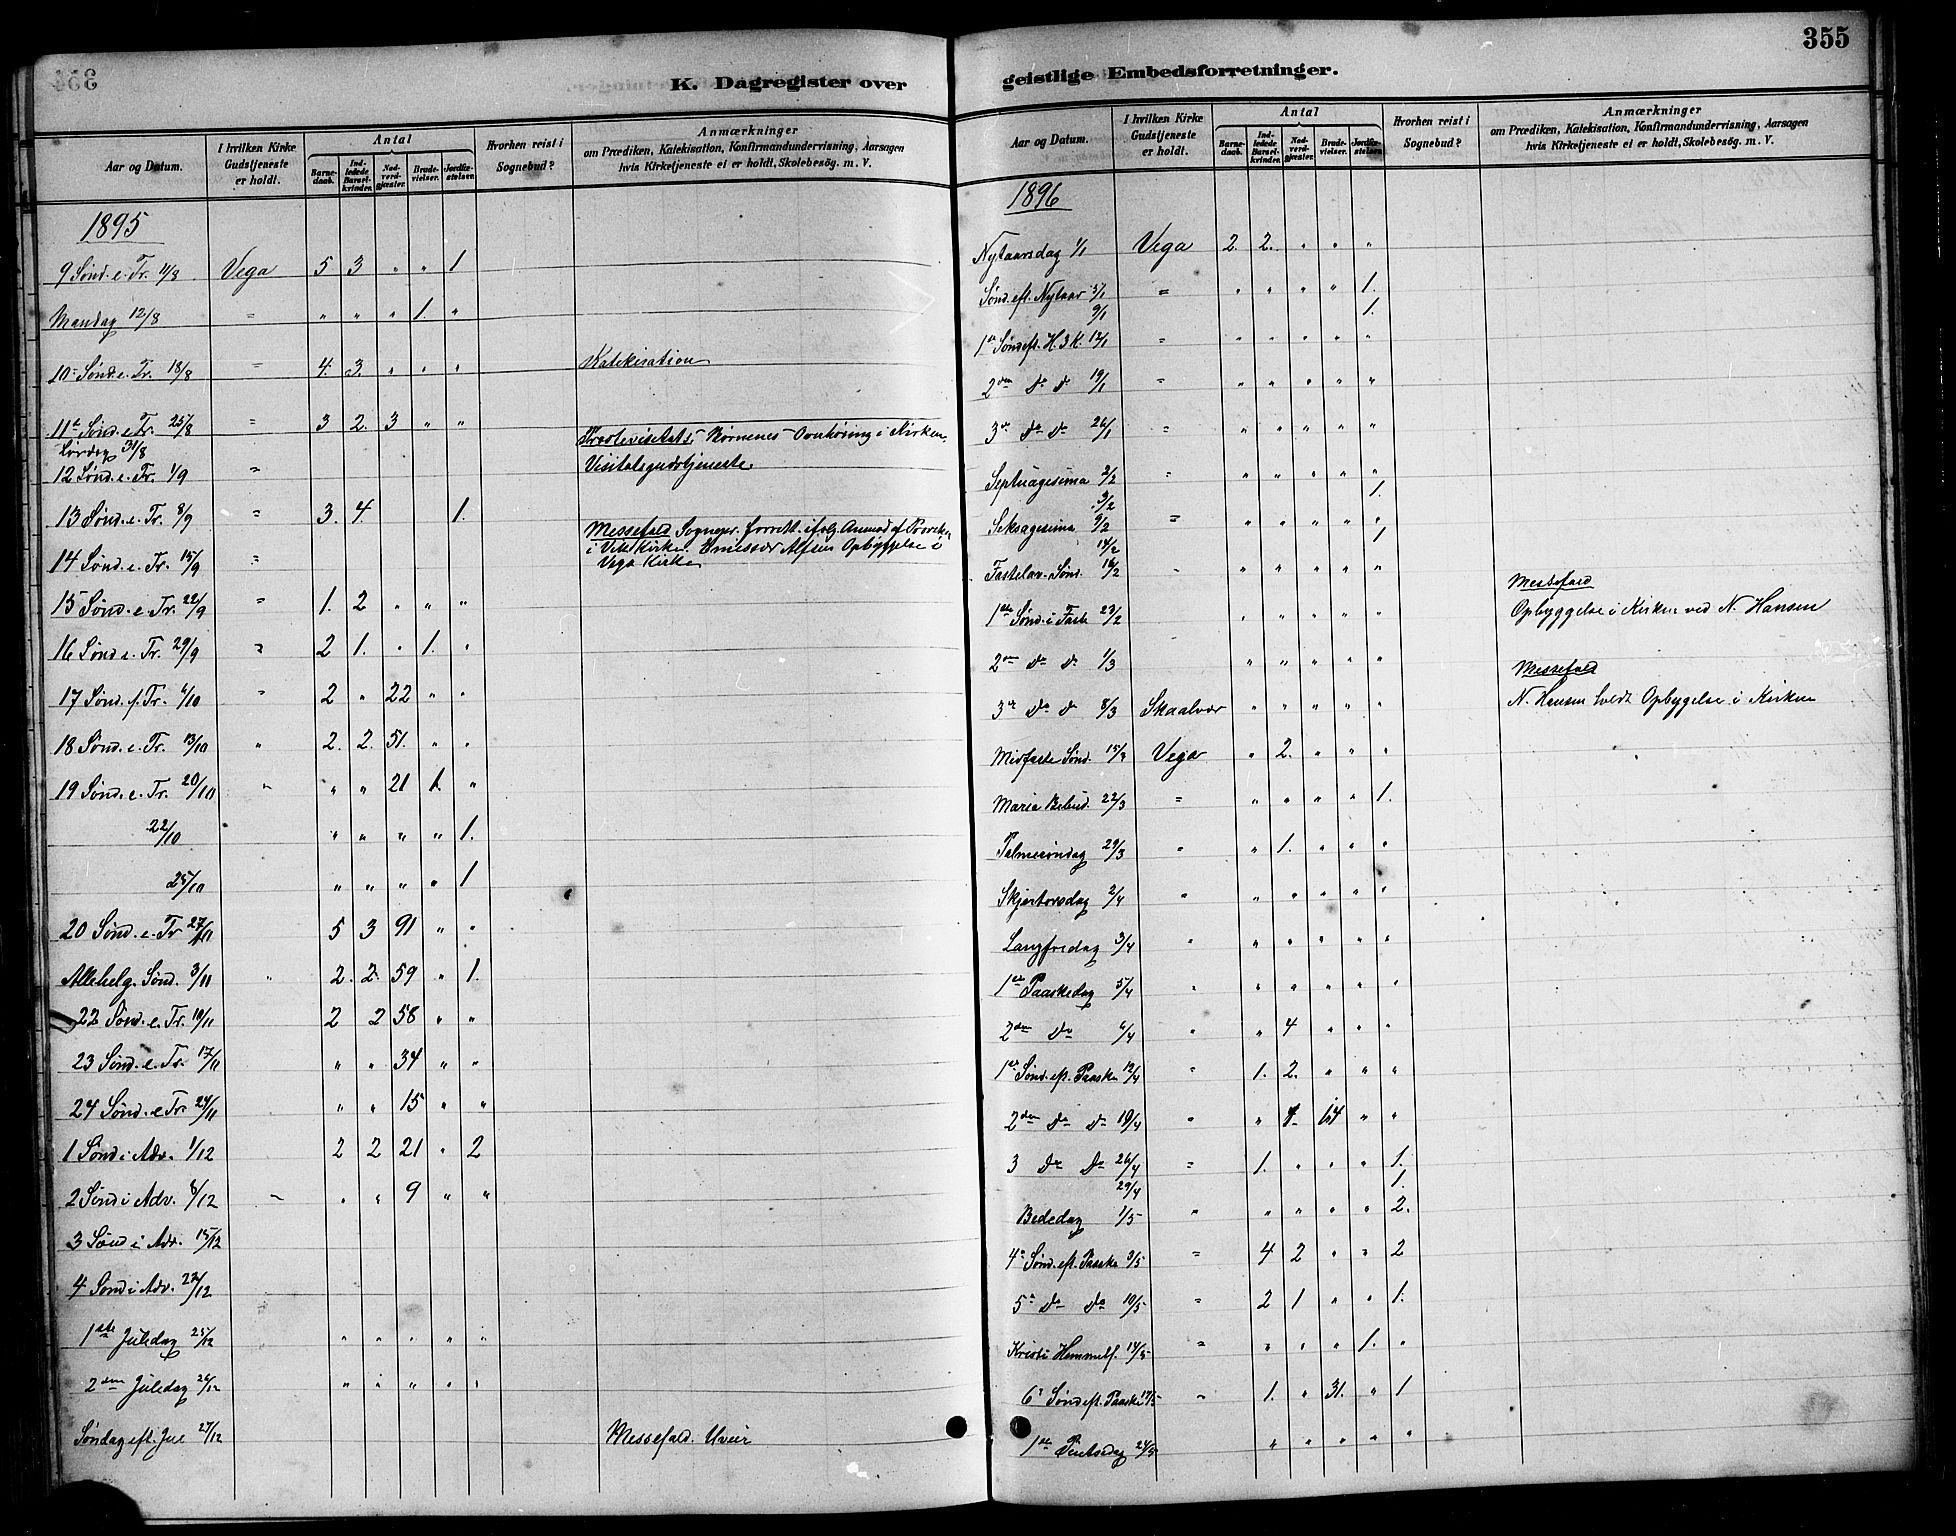 K. Dagregister over
Aar og Datum. | I hvilken Kirke Gudstjeneste er holdt. | Antal | Barnedaab. | Indledede Barselkvinder. | Nadverdgjæster. | Brudevielser. | Jordfæstelser. | Hvorhen reist i Sognebud? | Anmærkninger om Prædiken, Katekisation, Konfirmandundervisning, Aarsagen hvis Kirketjeneste ei er holdt, Skolebesøg. m. V.
1895
9 Sønd. e. Tr. 11/8 Vega 5 3 " " 1
Mandag 12/8 = " " " 1. "
10- Sønd. e. Tr. 18/8 = 4. 3. " " " Katekisation
11te Sønd. e. Tr. 25/8 3 2. 3 " "
Lørdag 31/8 Børnenes Overhøring i Kirken.
12 Sønd. e. Tr. 1/9 = Visitatsgudstjeneste.
13 Sønd. e. Tr. 8/9 = 3. 4 1.
Messefald Sognepr. forrett. ifølg. Anmod. af Provsten
i Vik Kirke. Emissær Alfsen Opbyggelse i
14 Sønd. e. Tr. 15/9 = Vega Kirke
15 Sønd. e. Tr. 22/9 = 1. 2 " " "
16 Sønd. e. Tr. 29/9 = 2 1. " 1. "
17 Sønd. f. Tr. 6/10 " 2 " 22 " "
18 Sønd. e. Tr. 13/10 " 2. 2. 51. " "
19 Sønd. e. Tr. 20/10 " " " 21 1. "
22/10 " " " " 1.
25/10 " " " " 1
20 Sønd. e. Tr 27/11 5 3 91 " "
Allehelg. Sønd. 3/11 " 2. 2. 59 " 1.
22 Sønd. e. Tr. 10/11 2 2 58 " "
23 Sønd. e. Tr. 17/11 " " 34 " "
24 Sønd. e Tr. 24/11 " " 15 " "
1 Sønd i Adv. 1/12 2 2 21 " 2
2 Sønd i Adv. 8/12 " " " 9 " "
3 Sønd i Adv. 15/12
4 Sønd i Adv. 22/12
1ste Juledag 25/12 " " " " "
2den Juledag 26/12 " " " " "
Søndag eft. Jul 27/12 Messefald. Uveir
355
geistlige Embedsforretninger.
Aar og Datum. | I hvilken Kirke Gudstjeneste er holdt. | Antal | Barnedaab. | Indledede Barselkvinder. | Nadverdgjæster. | Brudevielser. | Jordfæstelser. | Hvorhen reist i Sognebud? | Anmærkninger om Prædiken, Katekisation, Konfirmandundervisning, Aarsagen hvis Kirketjeneste ei er holdt, Skolebesøg. m. V.
1896
Nytaarsdag 1/1 Vega 2. 2. " " "
Sønd. eft. Nytaar 5/1 = " " " " 1.
9/1 1.
1ste Sønd eft. H. 3 K. 12/1 = " " " " "
2den do do 19/1 = " " " " "
3de do do 26/1 = " " " " "
Septuagesima 2/2 = " " " " "
3/2 1.
Seksagesima 9/2 = " " " " "
14/2 1
Fastelav. Sønd. 16/2 " " " " " "
Messefald
1ste Sønd. i Faste 23/2 " " " " " Opbyggelse i Kirken ved N. Hansen
2den do do 1/3 " " " " " Messefald
3de do do 8/3 Skaalvær " " " " " N. Hansen holdt Opbygelse i Kirken
Midfaste Sønd. 15/3 Vega " 2. " " "
Maria Bebud. 22/3 = " " " " 1.
Palmesøndag 29/3 " " 1. " " "
Skjærtorsdag 2/4 " " " " " "
Langfredag 3/4 " " " " " "
1ste Paaskedag 5/4 " " " " " "
2den do 6/4 " " 4 " " "
1ste Sønd. eft. Paaske 12/4 " 1. 2. " " "
2den do do 19/4 " " " "
3 do do 26/4 = 1. " " " 1.
29/4 1.
Bededag 1/5 " " " " " 2.
4de Sønd. eft. Paaske 3/5 = 4 2 " " 2
5te do do 10/5 " 2 1 " " 1.
Kristi Hemmelf. 14/5 = " " " 1. "
6te Sønd eft. Paaske 17/5 " 1. " 31. " 1
1ste Pintsedag 24/5 " " " " "